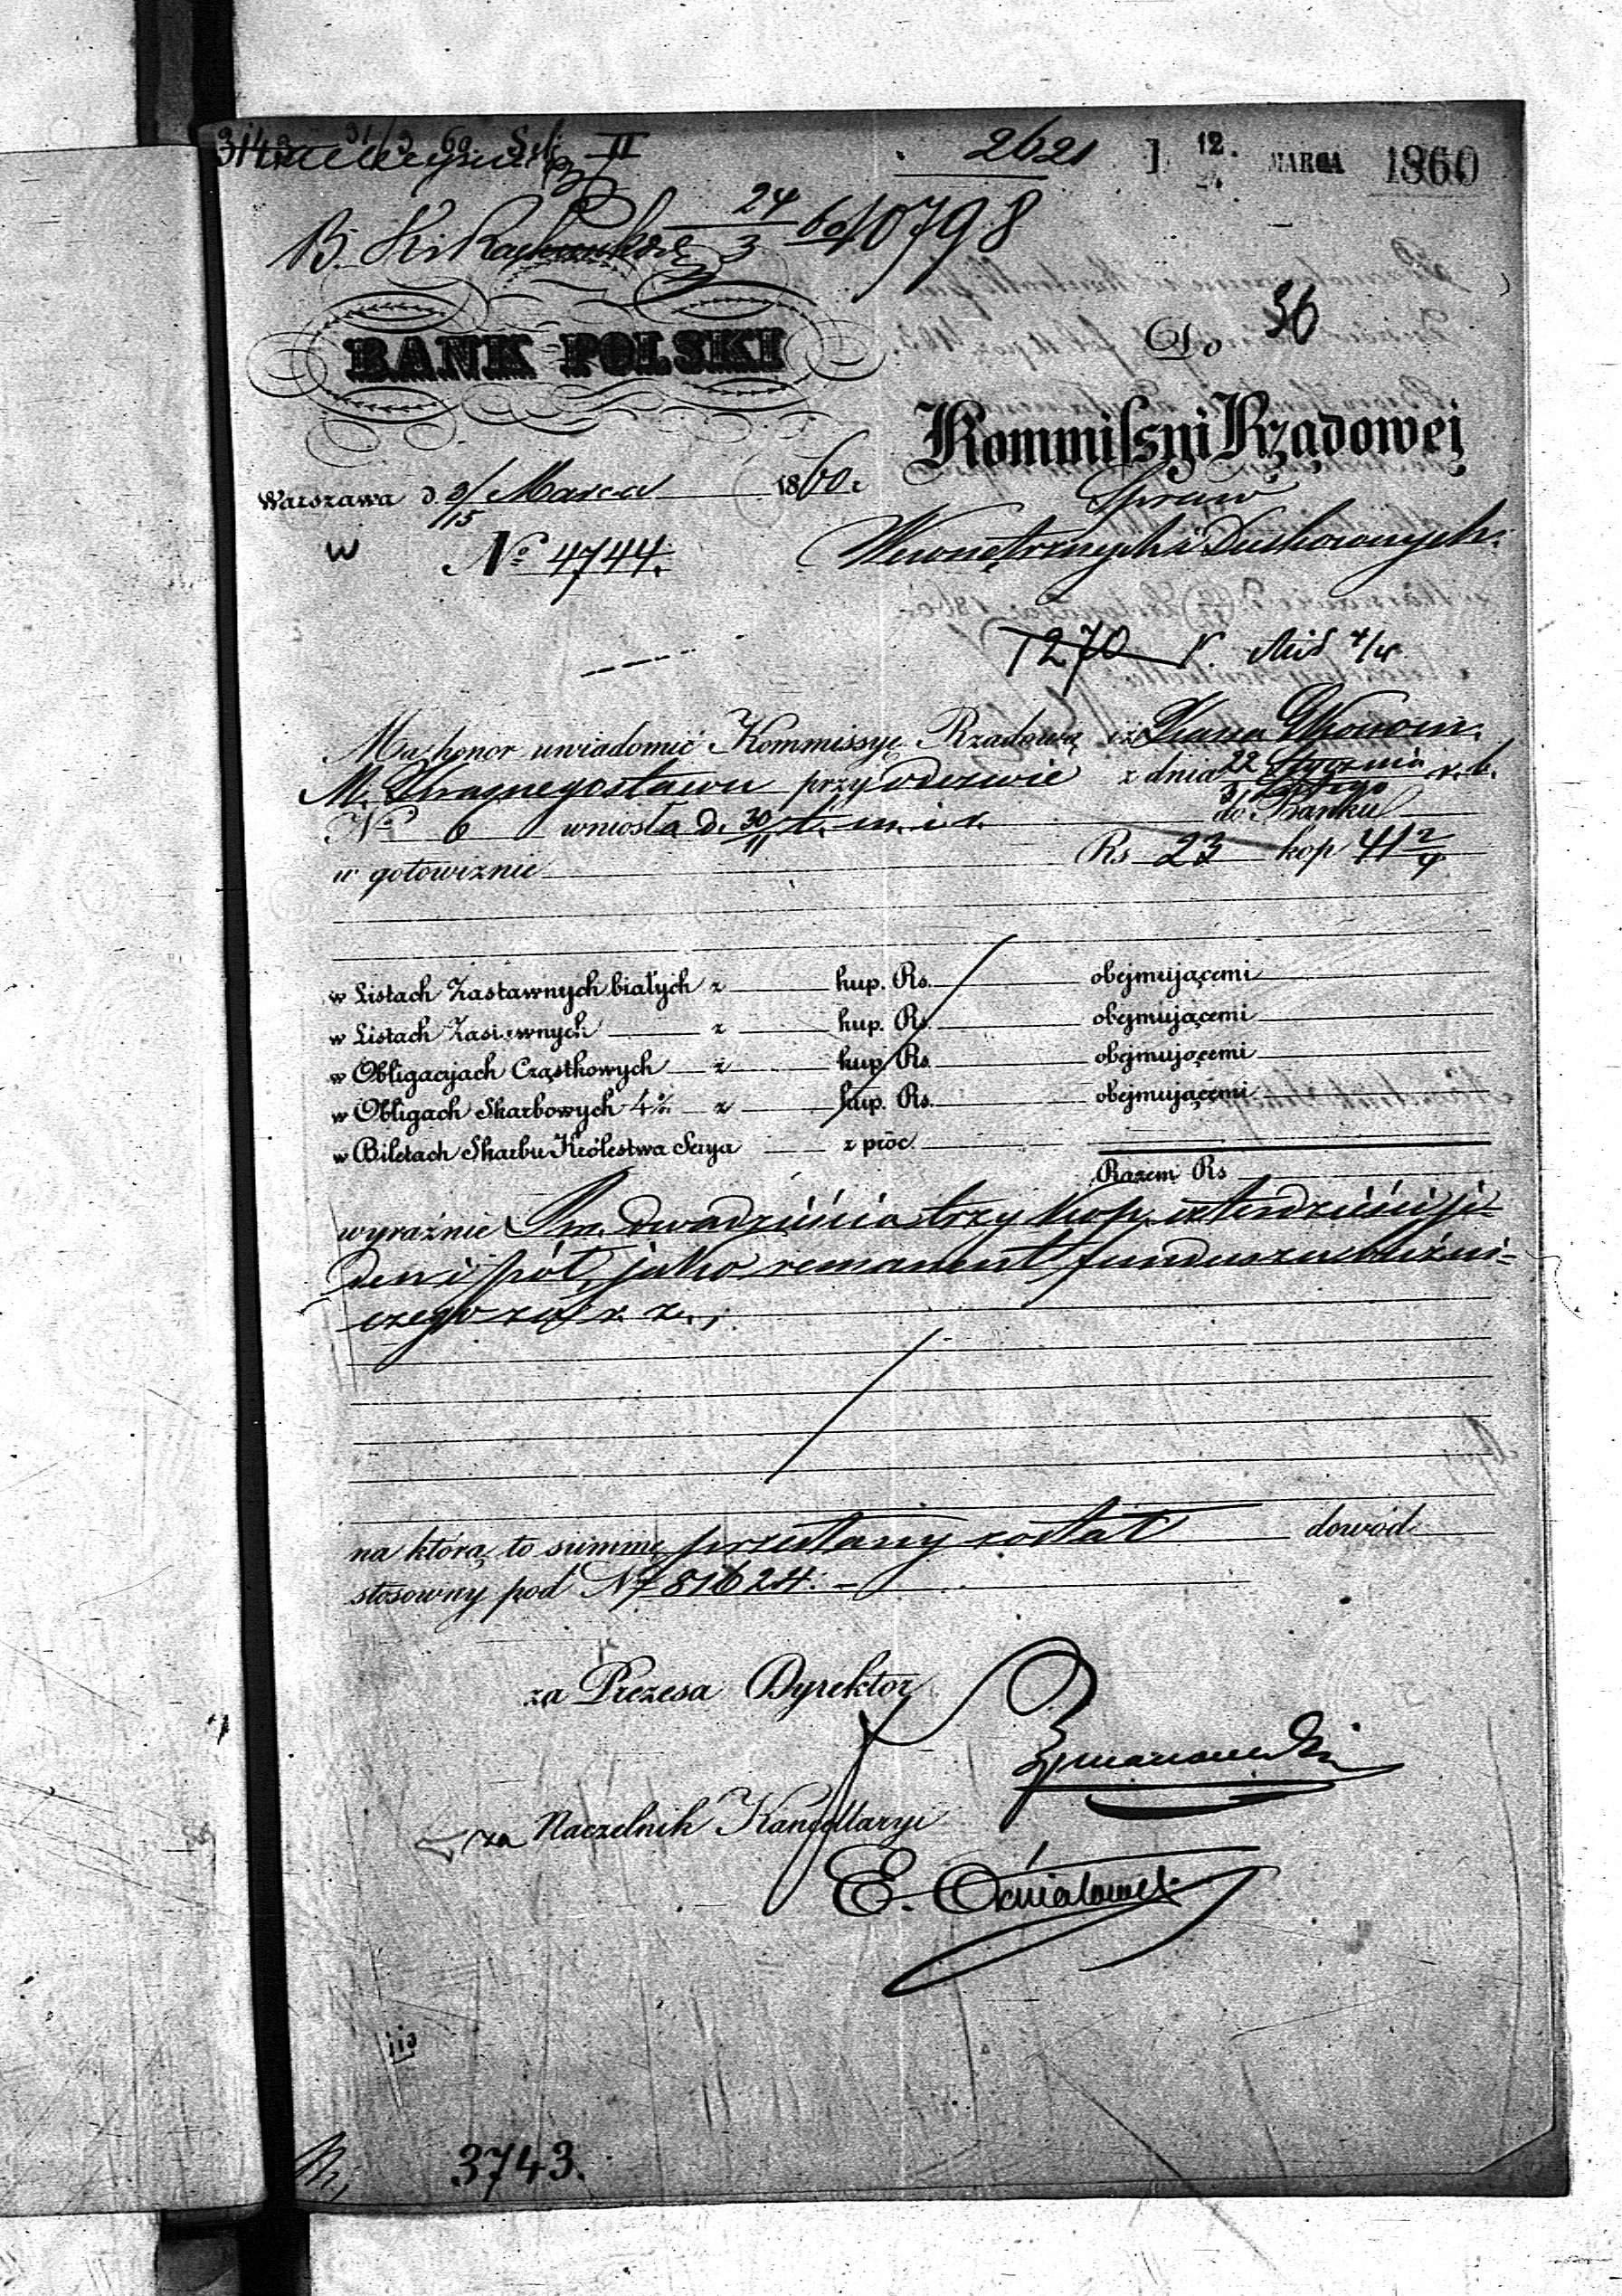 2621 12. MARCA 1860
24/3 60 10798
BANK POLSKI
Do 36
Kommissyi Rządowej
Spraw
Wewnętrznych i Duchownych.
Warszawa d. 3/15 Marca 1860 r.
W № 4744.
1270
Ma honor uwiadomić Kommissyę Rządową iż Kassa Ekonom.
M. Krasnegostawu przy odezwie z dnia 22 Stycznia / 3 Lutego r. b.
№ 6 wniosła d. 30/11 t. m. i r. do Banku
w gotowiznie Rs 23 kop 41 2/4
w Listach Zastawnych białych z kup. Rs. obejmującemi
w Listach Zastawnych z kup. Rs. obejmującemi
w Obligacyjach Cząstkowych z kup. Rs. obejmującemi
w Obligach Skarbowych 4% z kup. Rs. obejmującemi
w Biletach Skarbu Królestwa Serya z proc.
Razem Rs
wyraźnie Rsr. dwadzieścia trzy kop. czterdzieści je-
den i pół, jako remanent funduszu bóżni-
czego za r. z.,
na którą to summę przesłany został dowód
stosowny pod № 781624.
za Prezesa Dyrektor
za Naczelnik Kancellaryi
3743.